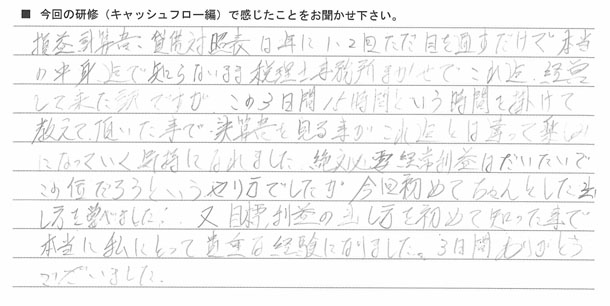 ■ 今回の研修（キャッシュフロー編）で感じたことをお聞かせ下さい。
損益計算書、貸借対照表は年に1、2回ただ目を通すだけで本当
の中身迄で知らないまま税理士事務所まかせで、これ迄、経営
して来た訳ですが、この3日間15時間という時間を掛けて
教えて頂いた事で、決算書を見る事がこれ迄とは違って楽しみ
になっていく気持になれました。絶対必要経常利益はだいたいで
この位だろうというやり方でしたが今回初めてちゃんとした出
し方を学べました。又、目標利益の出し方を初めて知った事で
本当に私にとって貴重な経験になりました。3日間ありがとう
ございました。